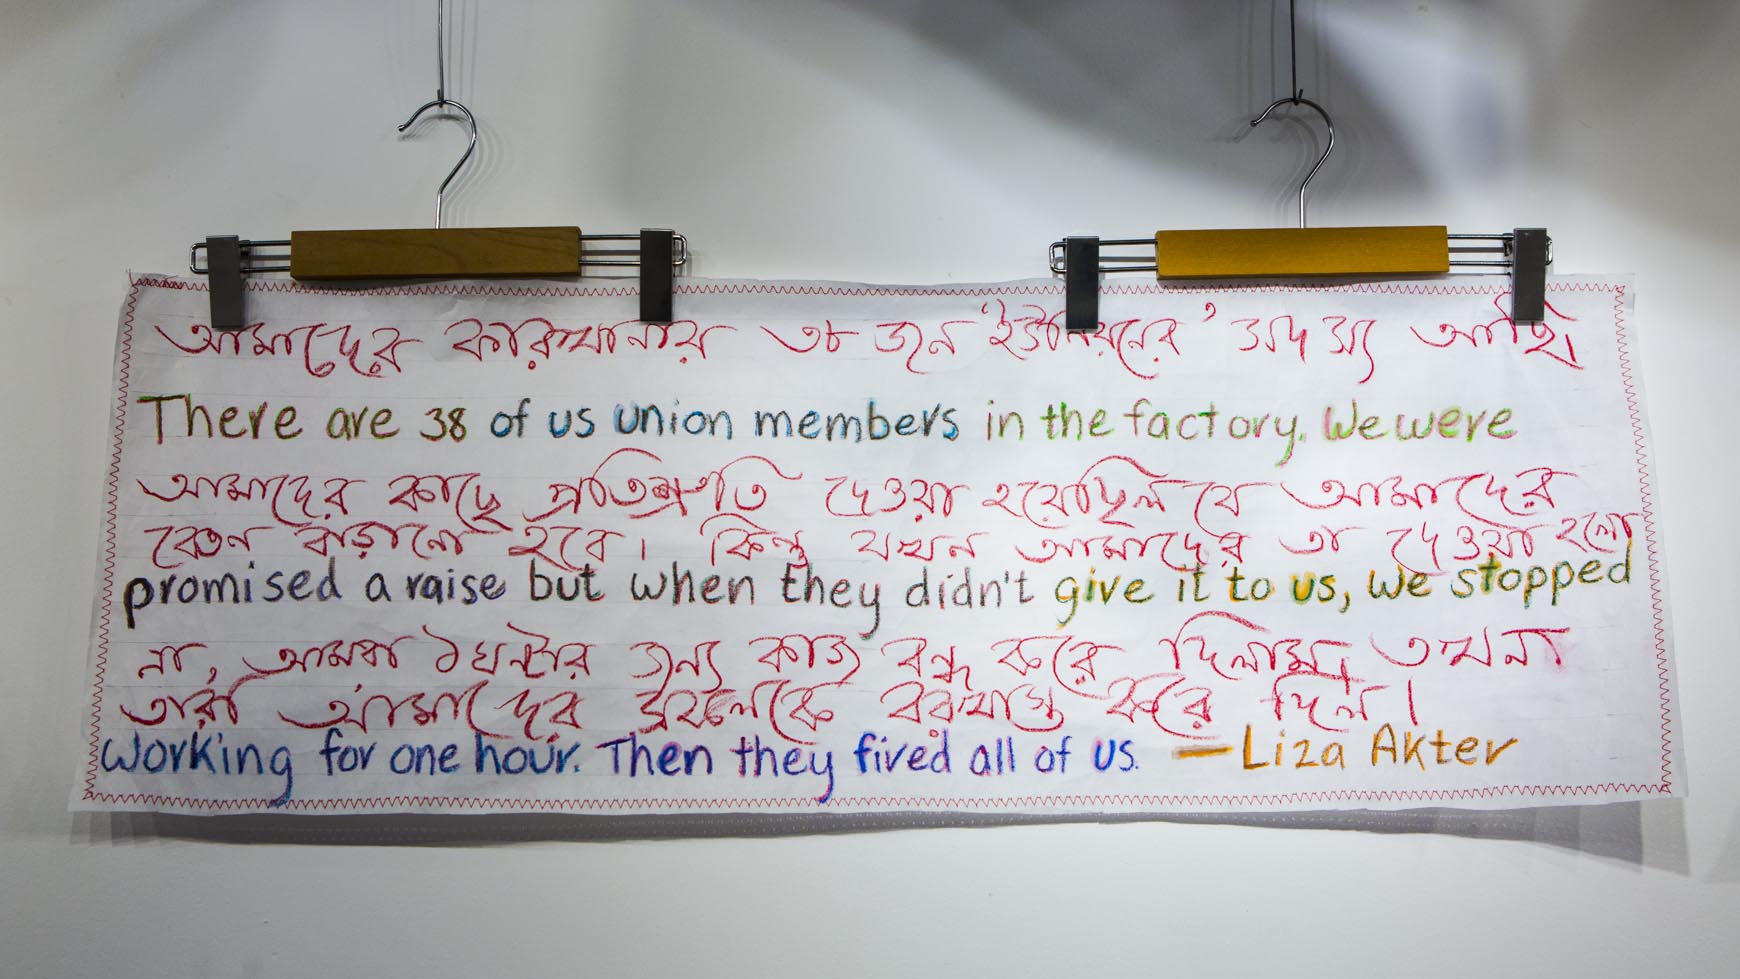 আমাদের কারখানায় ৩৮ জন 'ইউনিয়নের' সদস্য আছি।
There are 38 of us union members in the factory. We were
আমাদের কাছে প্রতিশ্রুতি দেওয়া হয়েছিল যে আমাদের
বেতন বাড়ানো হবে। কিন্তু যখন আমাদের তা দেওয়া হলো
promised a raise but when they didn't give it to us, we stopped
না, আমরা ১ ঘন্টার জন্য কাজ বন্ধ করে দিলাম, তখন
তারা আমাদের সকলকে বরখাস্ত করে দিল।
working for one hour. Then they fired all of us. — Liza Akter